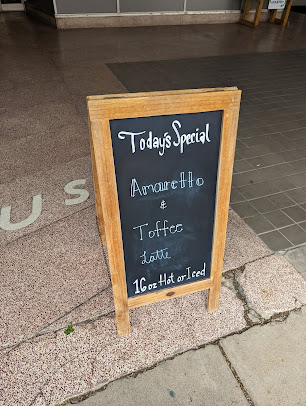 Today's Special
Amaretto
&
Toffee
Latte
16 oz Hot or Iced
US